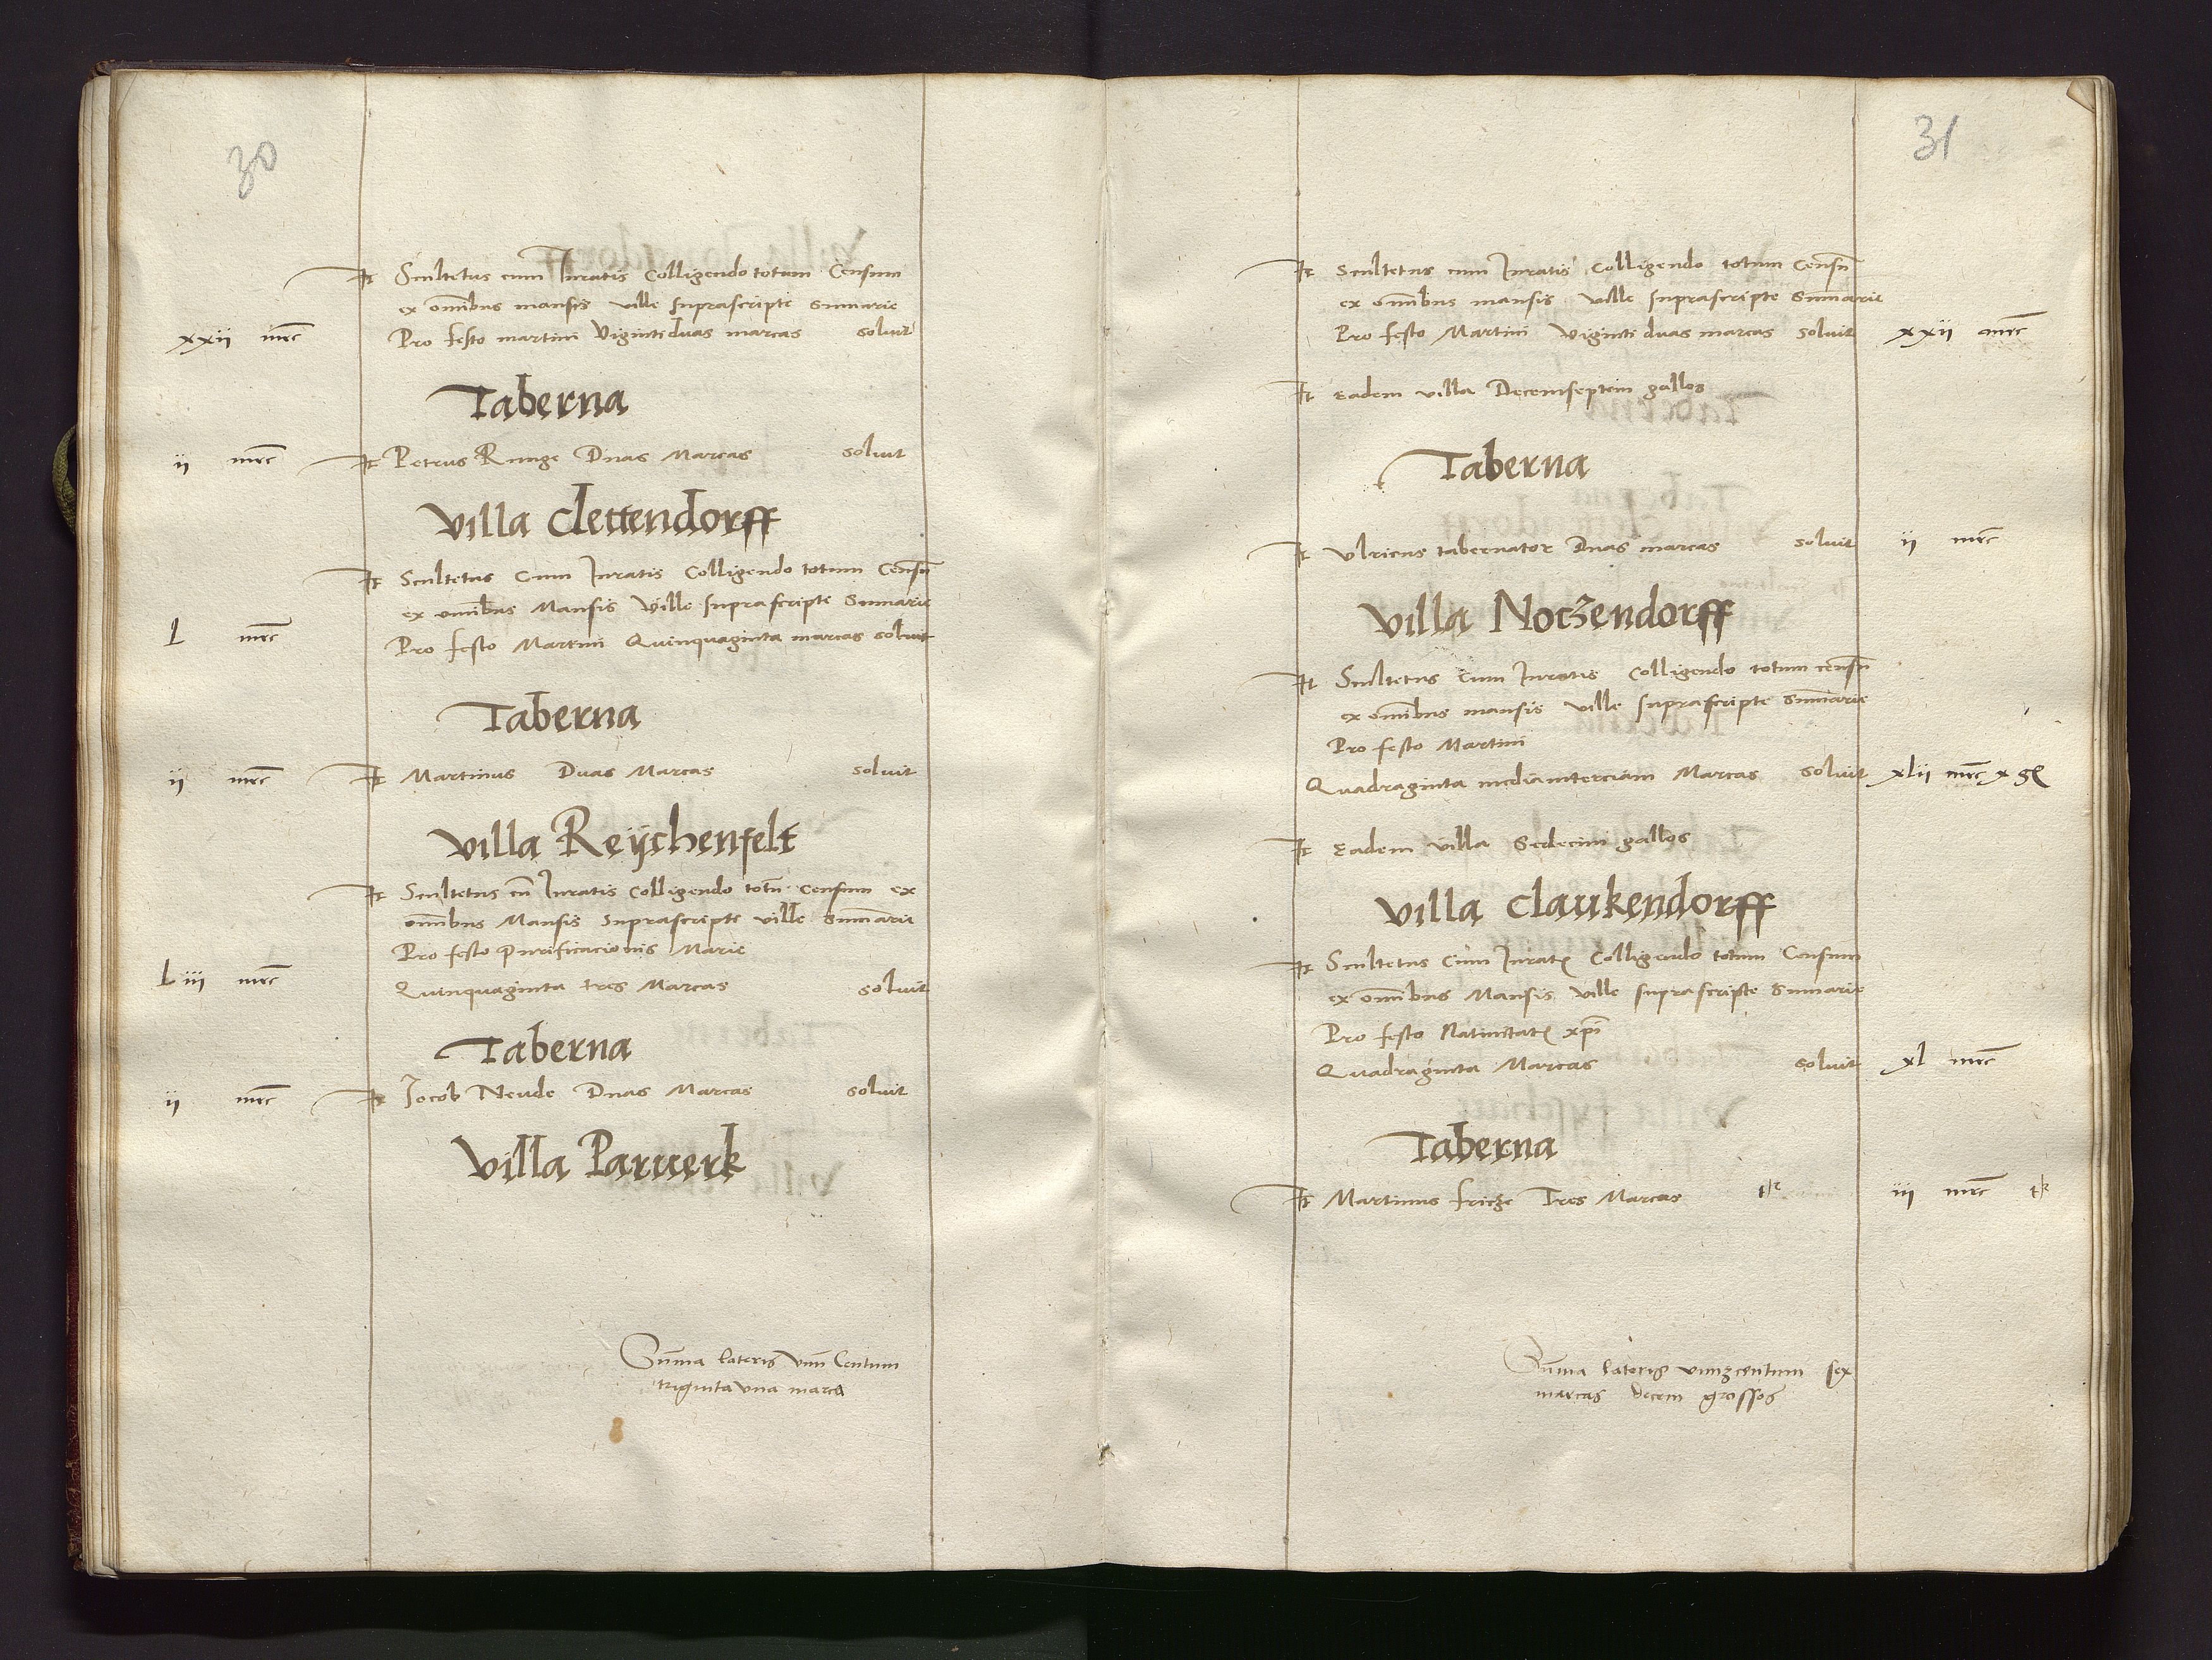 30
It Scultetus cum Juratis Colligendo totum Censum
ex om̄ibus mansis ville suprascripte Sumarie
xxii mrc Pro festo martini Vigintiduas marcas soluit
Taberna
ii mrc It Petrus Runge Duas Marcas soluit
Villa Clettendorff
It Scultetus Cum Juratis Colligendo totum Censū
ex om̄ibus Mansis Ville suprascripte Sumarie
L mrc Pro festo Martini Quinquaginta marcas soluit
Taberna
ii mrc It Martinus Duas Marcas soluit
Villa Reychenfelt
It Scultetus cū Juratis Colligendo totū Censum ex
om̄ibus Mansis Suprascripte ville Sum̄arie
Pro festo Purificacionis Marie
Liii mrc Quinquaginta tres Marcas soluit
Taberna
ii mrc It Jocob Neude Duas Marcas soluit
Villa Paruerk
Sūma lateris Centum
triginta vna marca
31
It Scultetus cum Juratis Colligendo totum Censū
ex om̄ibus mansis Ville suprascripte Sum̄arie
Pro festo Martini Viginti duas marcas soluit xxii mrc
It Eadem villa Decemseptem gallos
Taberna
It Vlricus tabernator Duas marcas soluit ii mrc
Villa Noczendorff
It Scultetus Cum Juratis Colligendo totum censū
ex om̄ibus mansis ville suprascripte Sum̄arie
Pro festo Martini
Quadraginta mediamterciam Marcas soluit xlii mrc x gs
It Eadem villa Sedecim gallos
Villa Claukendorff
It Scultetus Cum Jurat Colligendo totum Censum
ex om̄ibus Mansis Ville suprascripte Sumarie
Pro festo Natiuitat xpi
Quadraginta Marcas soluit xl mrc
Taberna
It Martinus fricze Tres Marcas iii mrc
Sūma lateris centum sex
marcas decem grossos